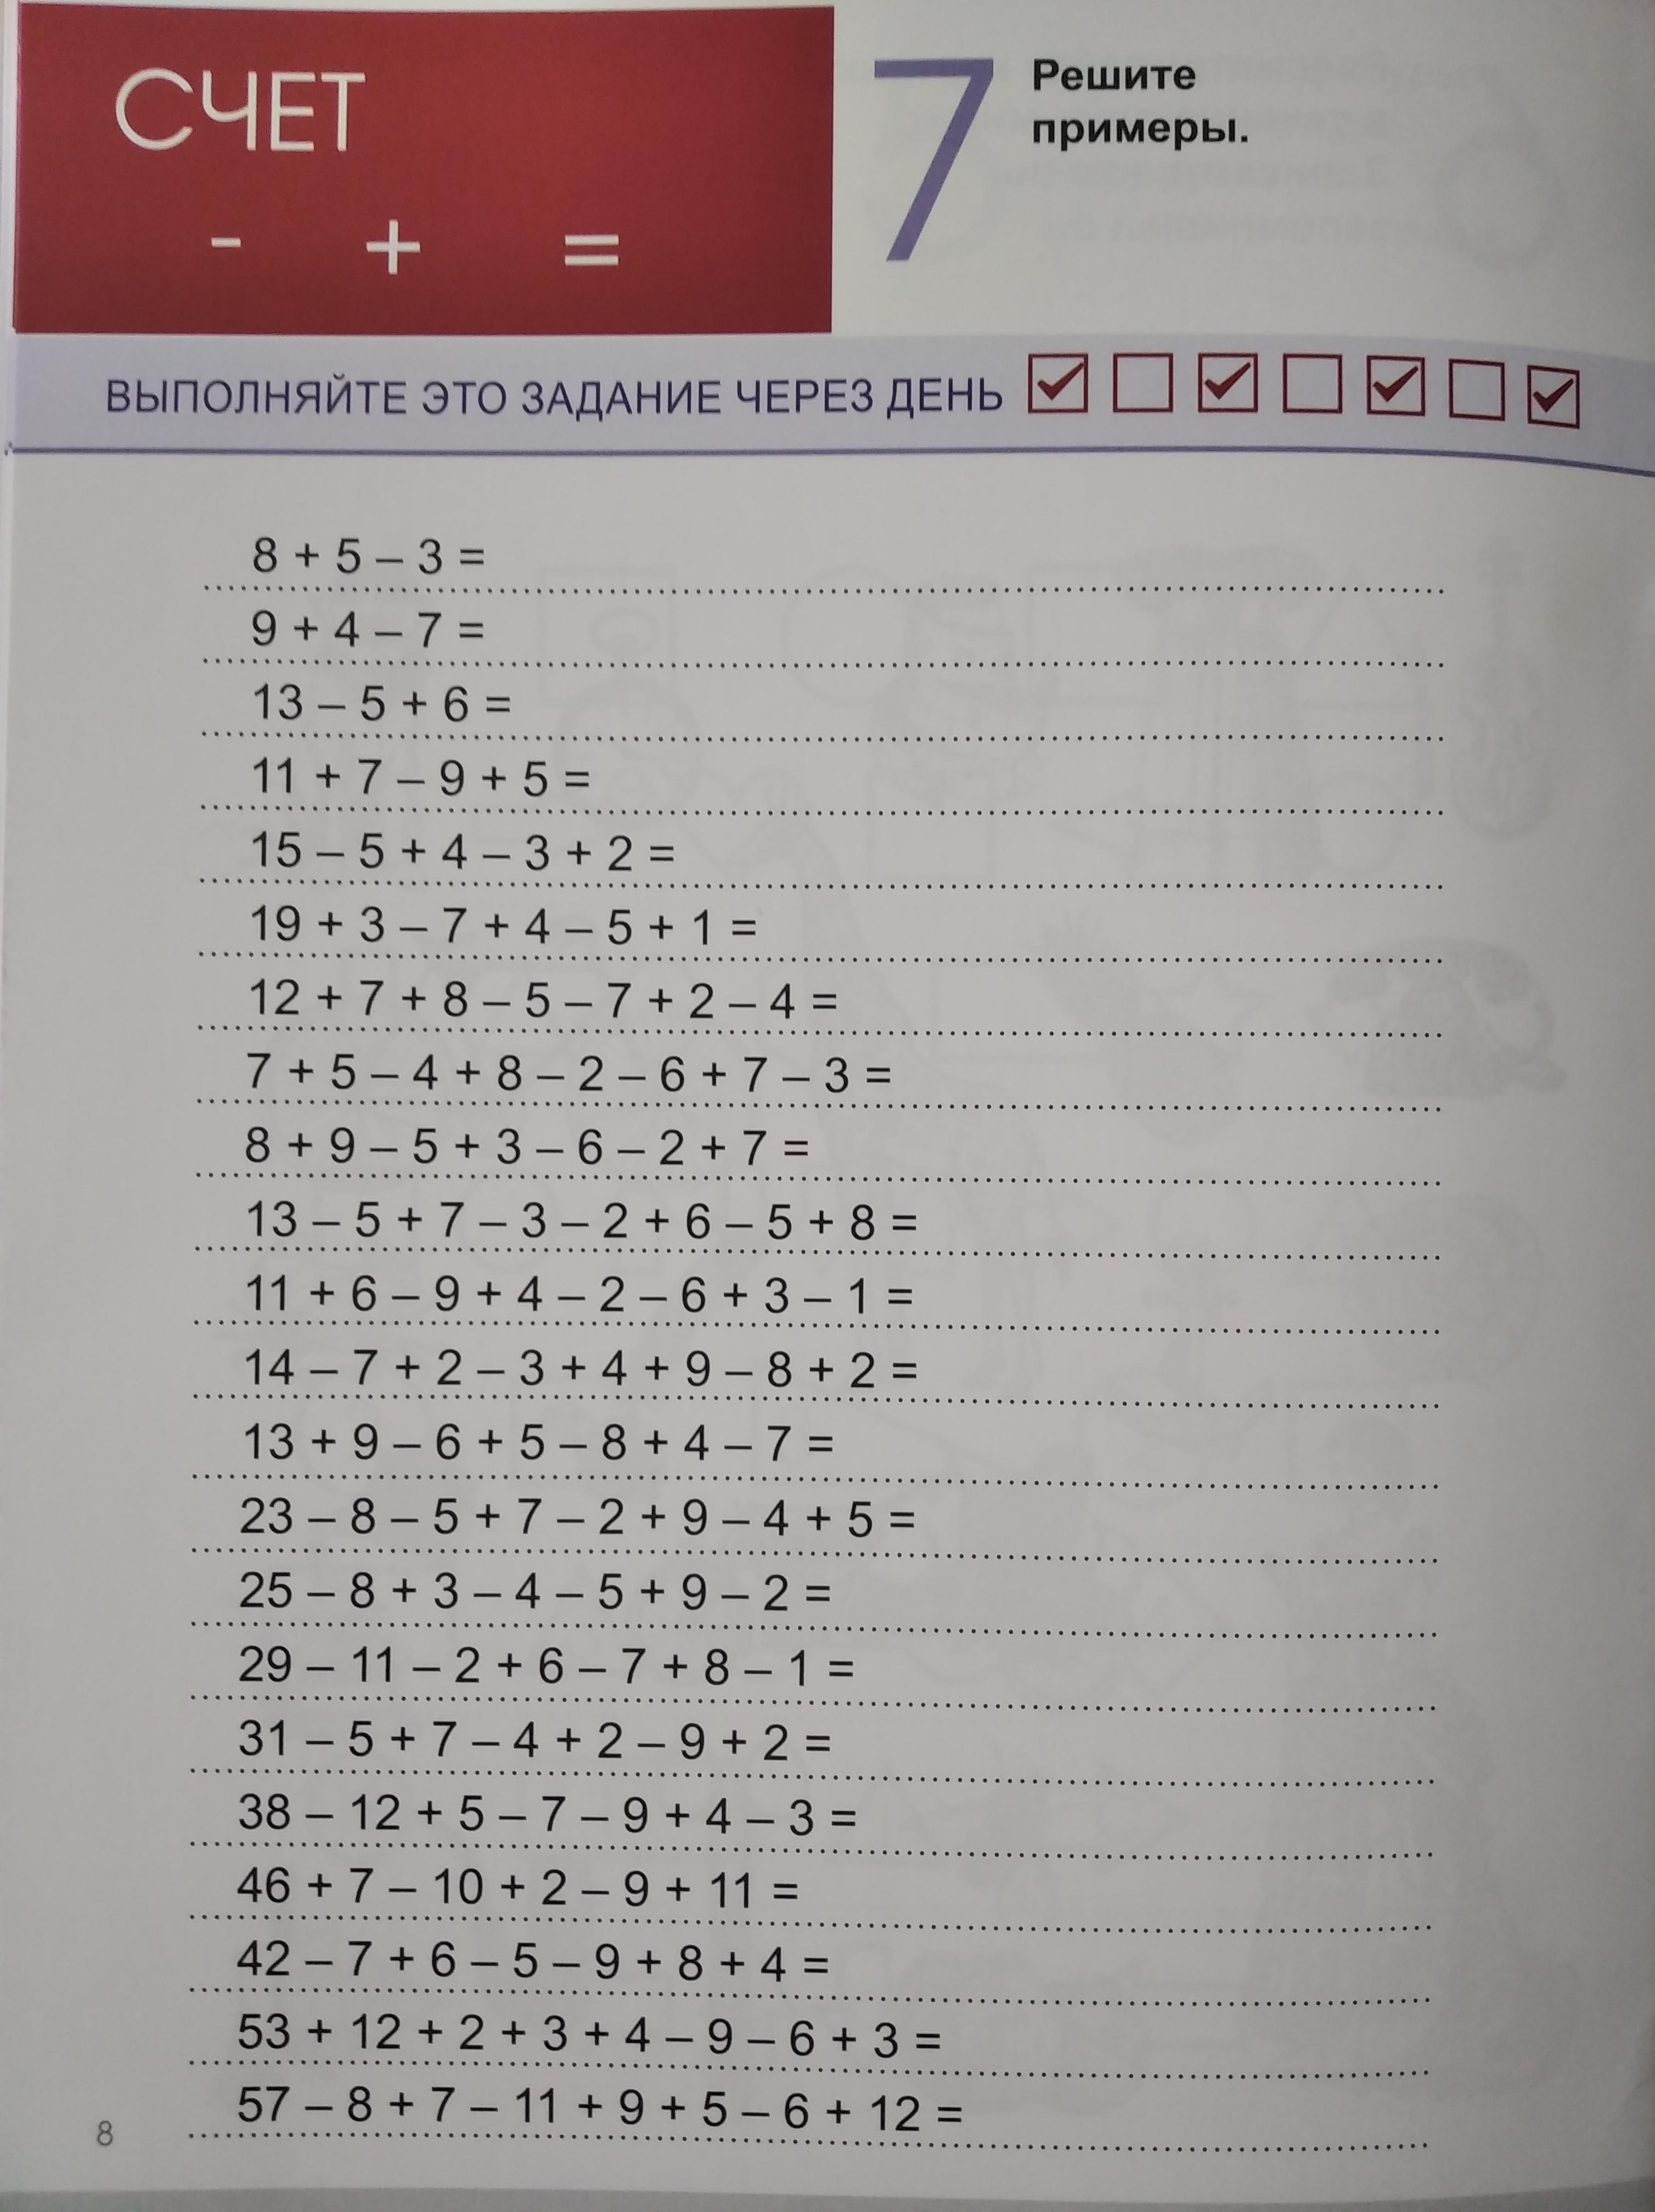 СЧЕТ
- + =
7
Решите
примеры.
ВЫПОЛНЯЙТЕ ЭТО ЗАДАНИЕ ЧЕРЕЗ ДЕНЬ
8 + 5 – 3 =
9 + 4 – 7 =
13 – 5 + 6 =
11 + 7 – 9 + 5 =
15 – 5 + 4 – 3 + 2 =
19 + 3 – 7 + 4 – 5 + 1 =
12 + 7 + 8 – 5 – 7 + 2 – 4 =
7 + 5 – 4 + 8 – 2 – 6 + 7 – 3 =
8 + 9 – 5 + 3 – 6 – 2 + 7 =
13 – 5 + 7 – 3 – 2 + 6 – 5 + 8 =
11 + 6 – 9 + 4 – 2 – 6 + 3 – 1 =
14 – 7 + 2 – 3 + 4 + 9 – 8 + 2 =
13 + 9 – 6 + 5 – 8 + 4 – 7 =
23 – 8 – 5 + 7 – 2 + 9 – 4 + 5 =
25 – 8 + 3 – 4 – 5 + 9 – 2 =
29 – 11 – 2 + 6 – 7 + 8 – 1 =
31 – 5 + 7 – 4 + 2 – 9 + 2 =
38 – 12 + 5 – 7 – 9 + 4 – 3 =
46 + 7 – 10 + 2 – 9 + 11 =
42 – 7 + 6 – 5 – 9 + 8 + 4 =
53 + 12 + 2 + 3 + 4 – 9 – 6 + 3 =
57 – 8 + 7 – 11 + 9 + 5 – 6 + 12 =
8